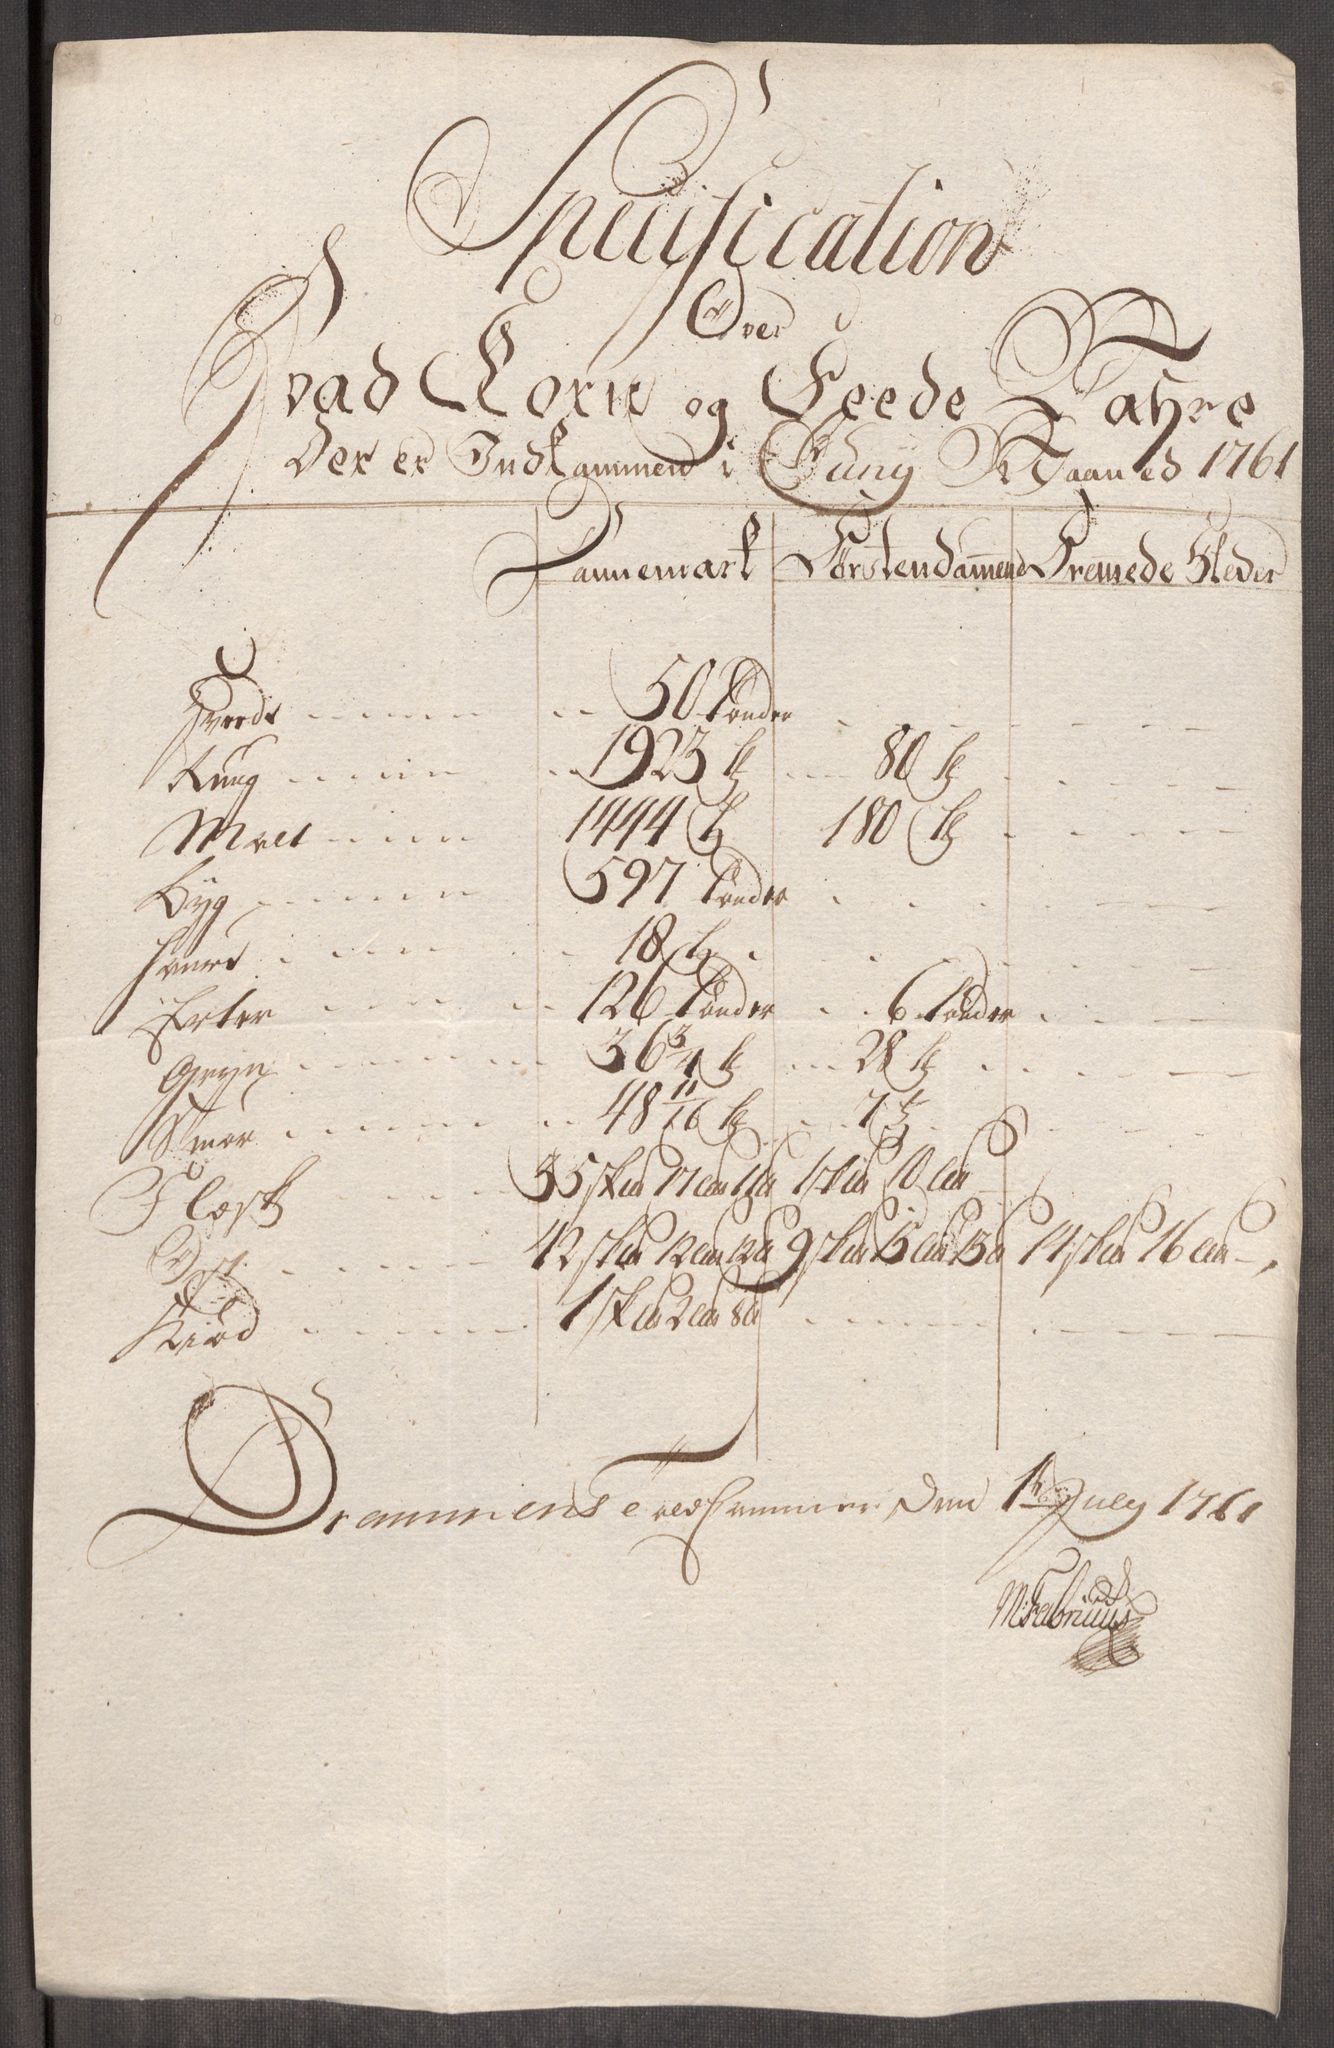 Specification
Over
Hvad Korn og Feede Wahre
Der er Indkammen i Juny Maaned 1761
Dannemark Førstendømmend Fremede Steder
Hvede 50 Tønder
Rung 1923 tr 80 tr
Malt 1494 tr 180 tr
Byg 597 Tønder
Haver 18 tr
Erter 126 Tønder 6 Tønder
Gryn 36 3/4 tr 28 tr
Smør 48 11/16 tr 7 tr
Flæsk 35 sk℔ 17 L℔ 11 ℔ 1 sk℔ 10 L℔
Ost 42 sk℔ 12 L℔ 12 ℔ 9 sk℔ 15 L℔ 13 ℔ 14 sk℔ 16 L℔
Kiød 1 sk℔ 2 L℔ 8 ℔
Drammens Toldkammer den 1 July 1761
M: Fabricius